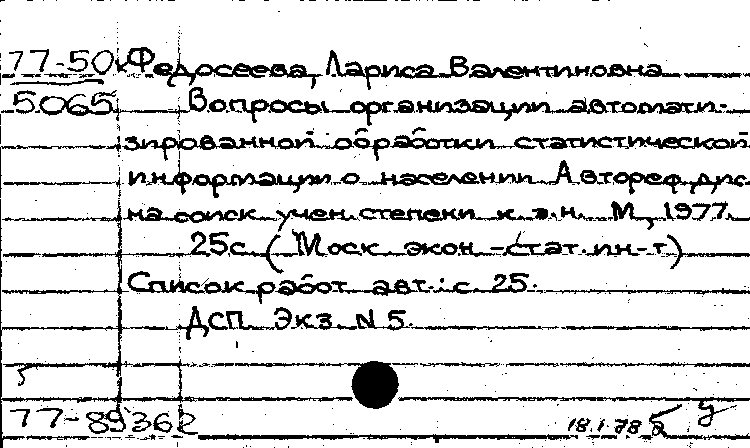 77-50к Федосеева, Лариса Валентиновна
5065 Вопросы организации автомати-
зированной обработки статистической
информации о населении Автореф. дис
на соиск. учен. степени к.э.н. М., 1977.
25с. (Моск. экон.-стат. ин-т)
Список работ авт.: с. 25.
ДСП. Экз. N 5.
77-89362
18.1.78